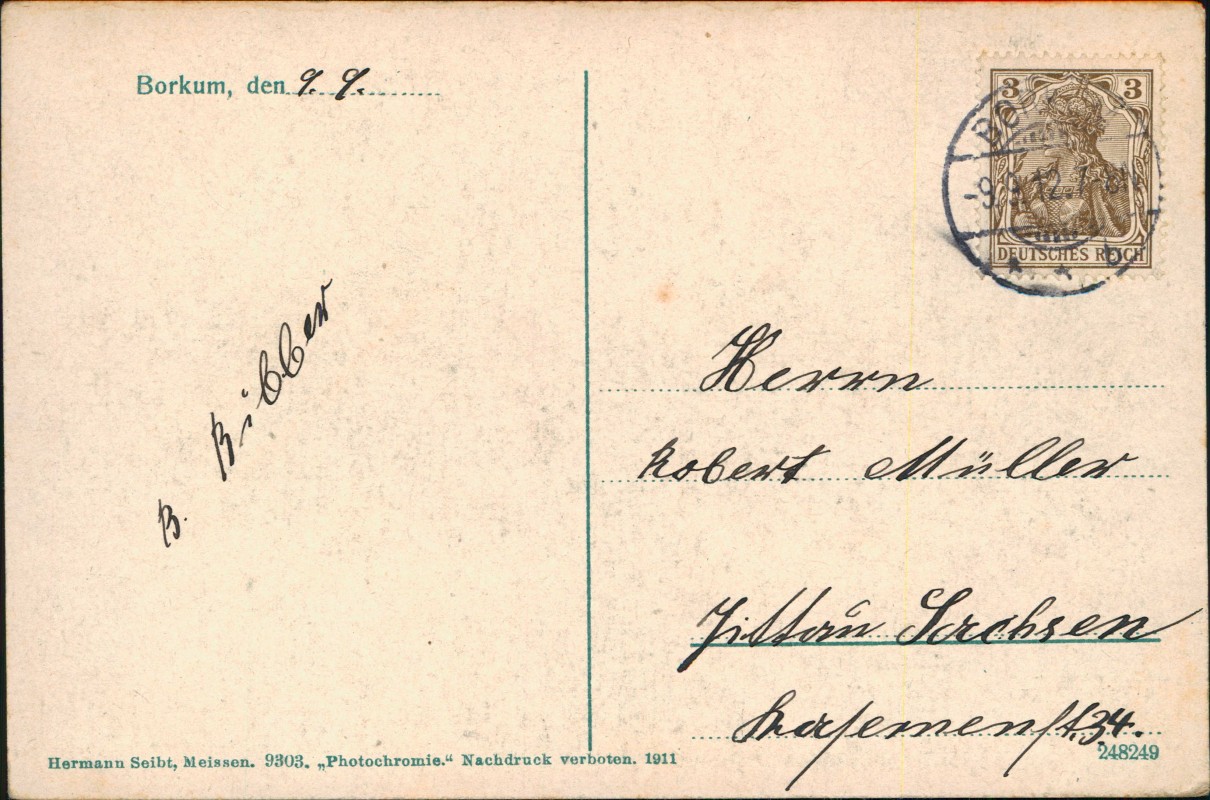 Borkum, den 9. 9.
3 3
DEUTSCHES REICH
B. Bibber
Herrn
Robert Müller
Zittau Sachsen
34.
248249
Hermann Seibt, Meissen. 9303. „Photochromie.“ Nachdruck verboten. 1911